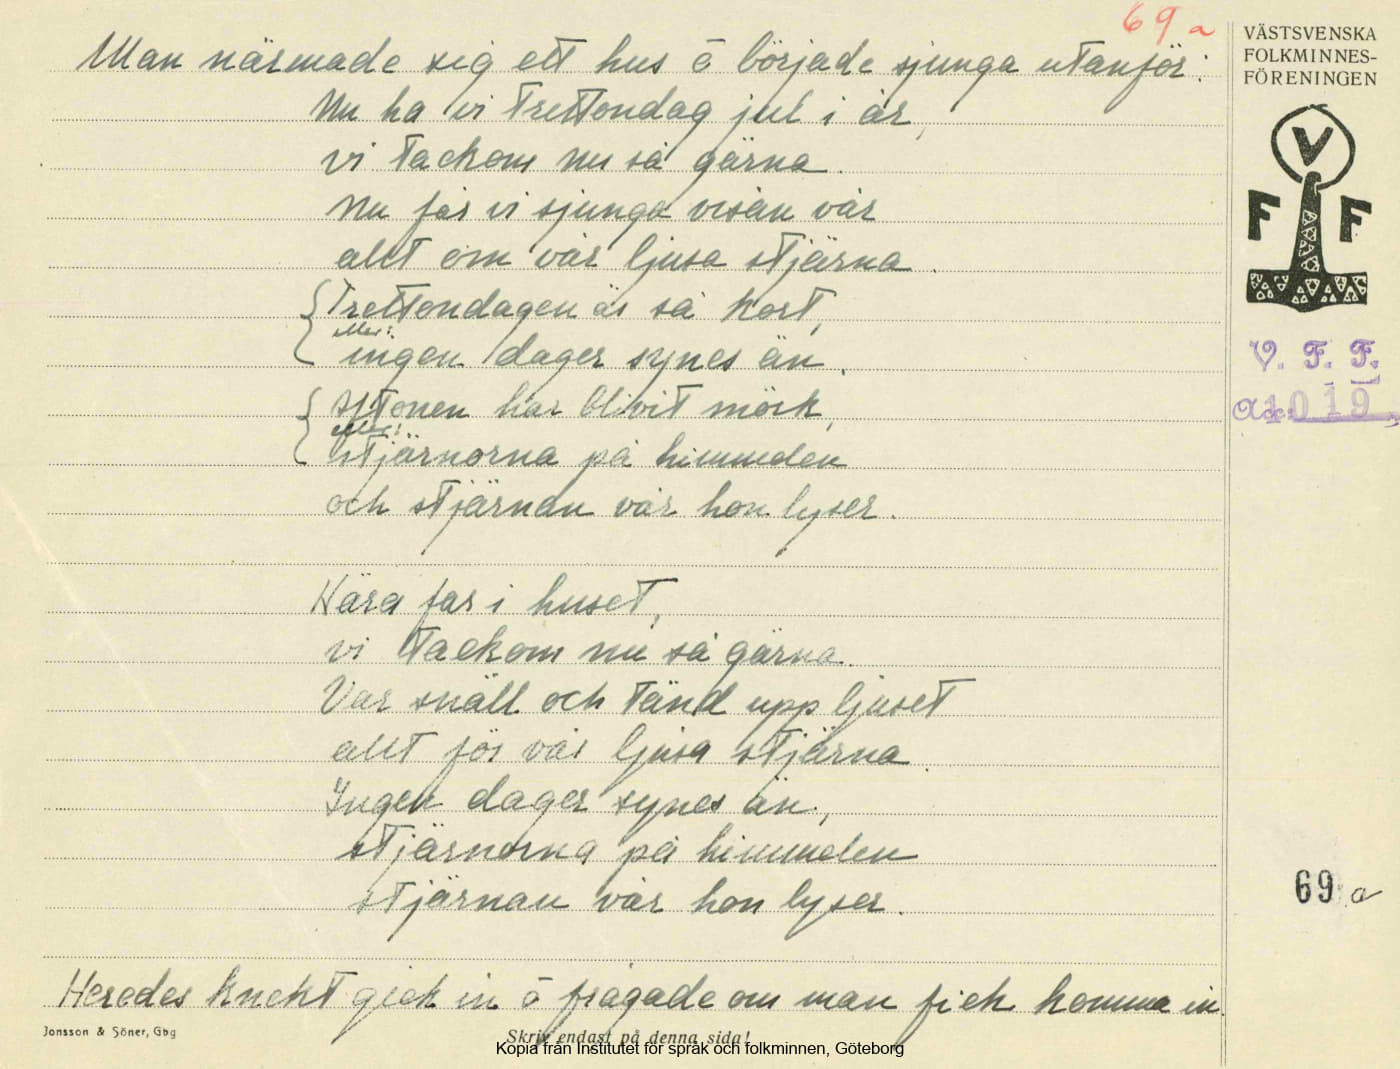 69 a
VÄSTSVENSKA
FOLKMINNES-
FÖRENINGEN
Man närmade sig ett hus å började sjunga utanför:
Nu ha vi trettondag jul i år,
vi tackom nu så gärna.
Nu får vi sjunga visan vår
allt om vår ljusa stjärna.
Trettondagen är så kort,
eller:
ingen dager synes än.
Aftonen har blivit mörk,
eller:
Stjärnorna på himmelen
och stjärnan vår hon lyser.
Kära far i huset,
vi tackom nu så gärna.
Var snäll och tänd upp ljuset
allt för vår ljusa stjärna.
Ingen dager synes än,
stjärnorna på himmelen
stjärnan vår hon lyser.
Herodes knekt gick in å frågade om man fick komma in.
V
F F
V. F. F.
Acc: 1019
69 a
Jonsson & Söner, Gbg
Skriv endast på denna sida!
Kopia från Institutet för språk och folkminnen, Göteborg